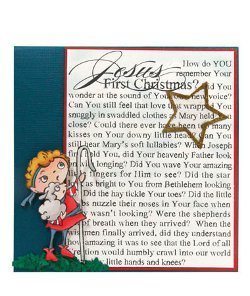 How do YOU
Jesus remember Your
First Christmas?
wonder at the sound of You new voice?
Can You still feel that love wrapped
snuggly in swaddled clothes Mary held
close? Could there ever have been many
kisses on Your downy little head? Can
still hear Mary's soft lullabies? When Joseph
did You, did your heavenly Father look
longing? Did You wave Your amazing
fingers for Him to see? Did the star
as bright to You from Bethlehem looking
Did the hay tickle Your toes? Did the little
nuzzle their noses in Your face when
weren't looking? Were the shepherds
of breath when they arrived? When the
men finally arrived, did they understand
how amazing it was to see that the Lord of all
would humbly crawl into our world
little hands and knees?